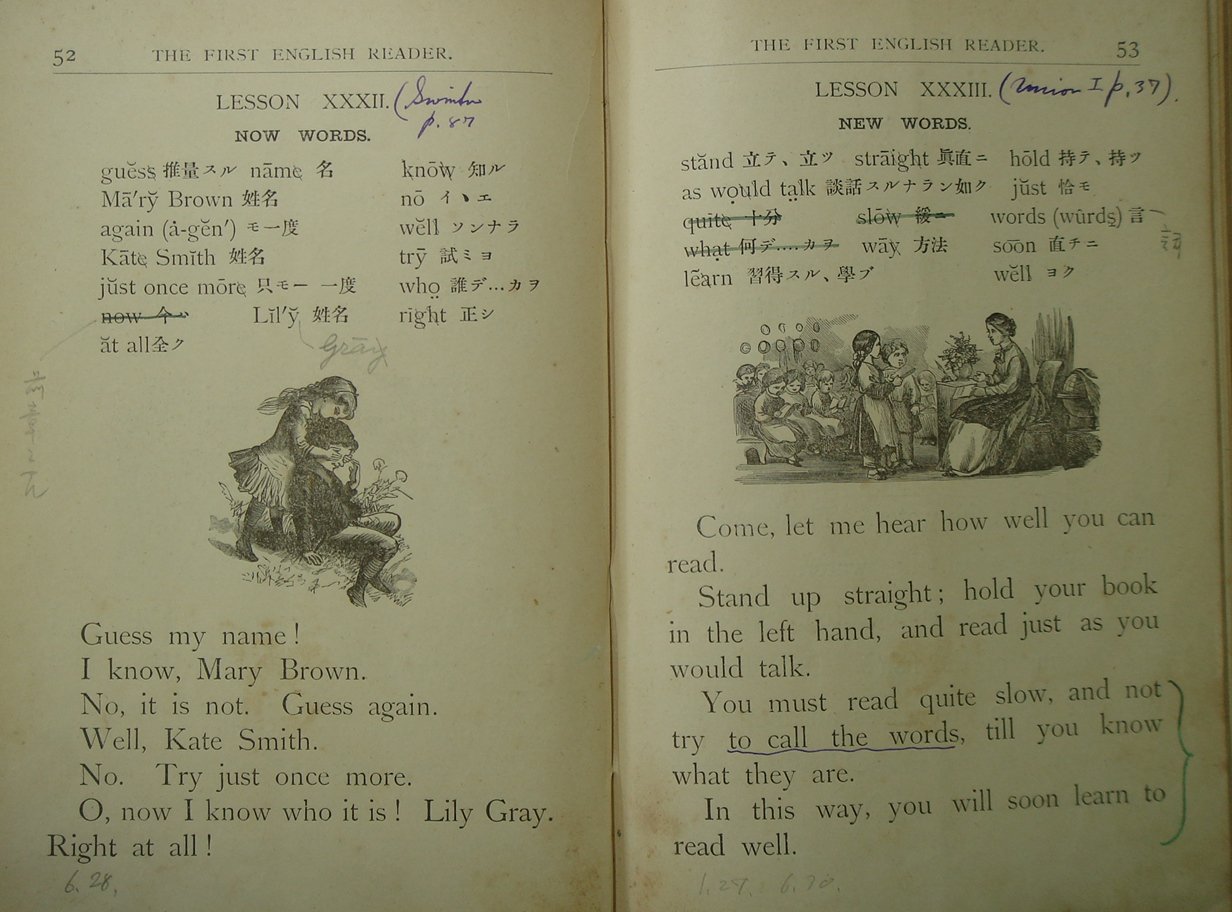 52 THE FIRST ENGLISH READER.
LESSON XXXII. (Swinton
p. 87
NOW WORDS.
guĕss 推量スル nāme 名 knōw 知ル
Mā'rў Brown 姓名 nō イヽエ
again (ȧ-gĕn') モ一度 wĕll ソンナラ
Kāte Smĭth 姓名 trȳ 試ミヨ
jŭst once mōre 只モー 一度 who̤ 誰デ...カヲ
now 今ハ Lĭl'y̆ 姓名 rīght 正シ
ăt all全ク Grāy
Guess my name!
I know, Mary Brown.
No, it is not. Guess again.
Well, Kate Smith.
No. Try just once more.
O, now I know who it is! Lily Gray.
Right at all!
6. 28.
THE FIRST ENGLISH READER. 53
LESSON XXXIII. (Union I p. 37).
NEW WORDS.
stănd 立テ、立ツ strāight 眞直ニ hōld 持テ、持ツ
as wo̤uld ta̤lk 談話スルナラン如ク jŭst 恰モ
quīte 十分 slōw 緩ニ words (wûrdş) 言
what 何デ....カヲ wāy 方法 soon 直チニ
lẽarn 習得スル、學ブ wĕll ヨク
Come, let me hear how well you can
read.
Stand up straight; hold your book
in the left hand, and read just as you
would talk.
You must read quite slow, and not
try to call the words, till you know
what they are.
In this way, you will soon learn to
read well.